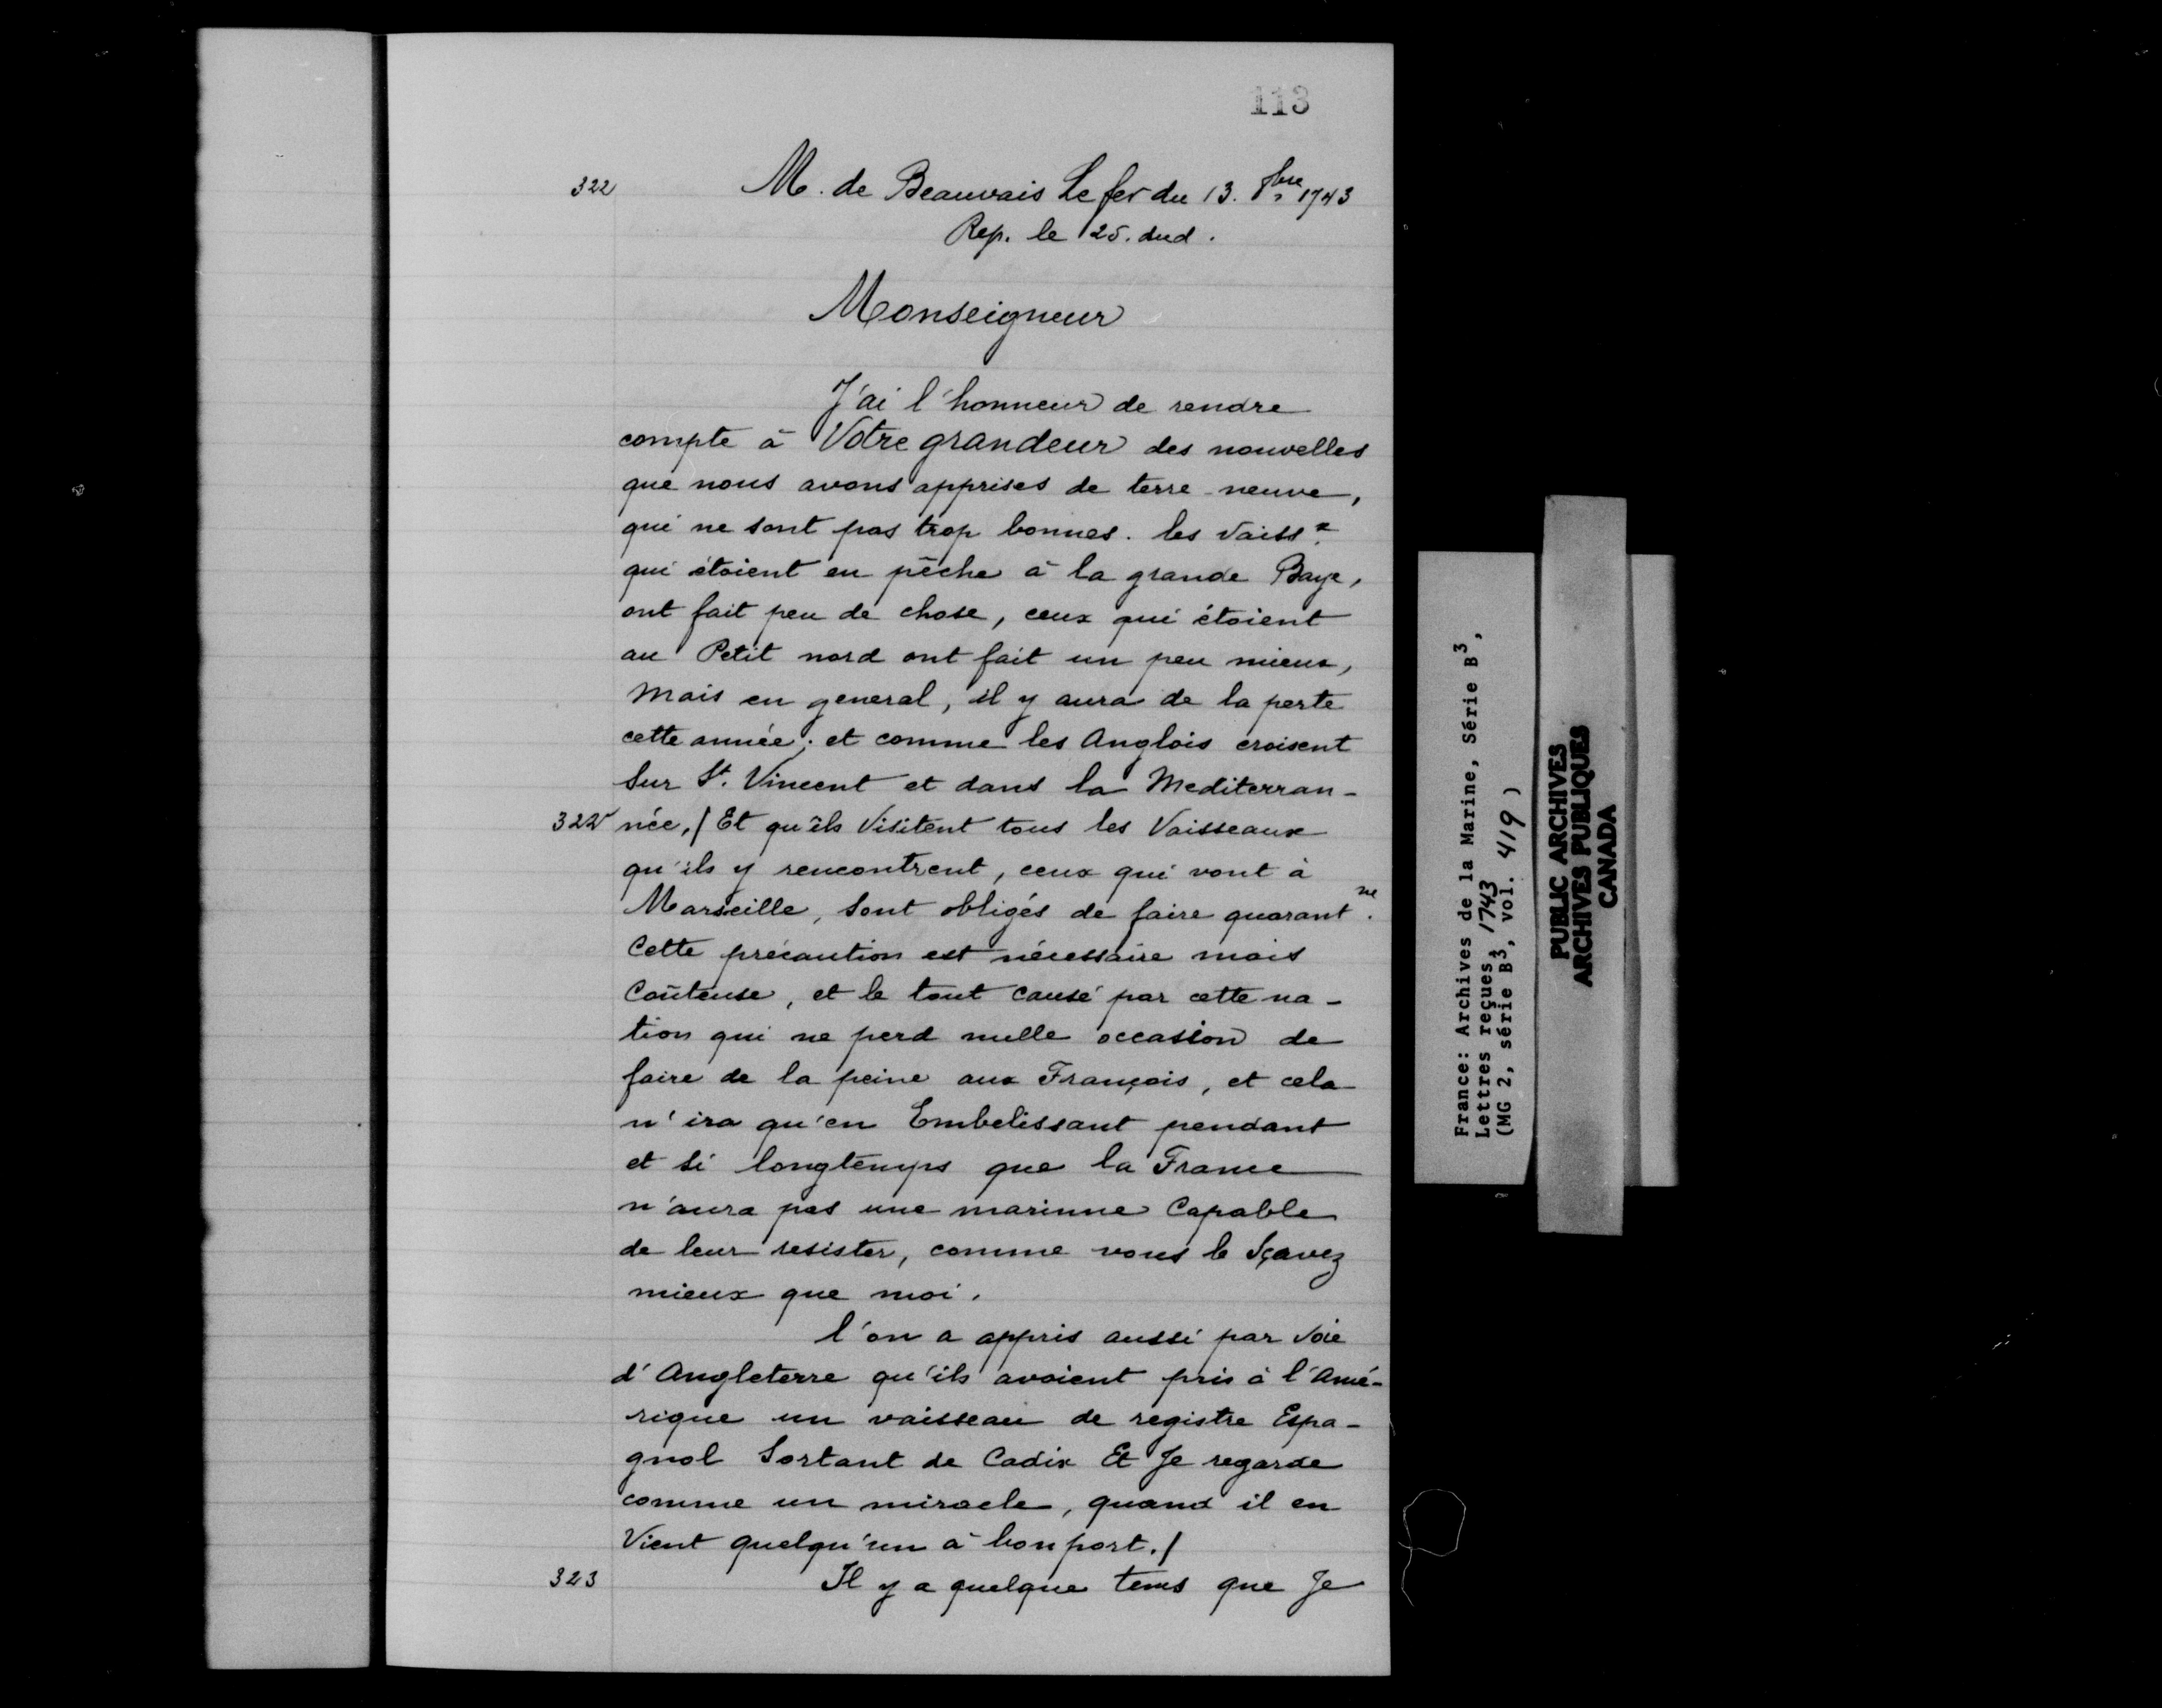 113
322 M. de Beauvais Le fer du 13. 8bre 1743
Rep. le 25. dud.
Monseigneur
J'ai l'honneur de rendre
compte à Votre grandeur des nouvelles
que nous avons apprises de terre-neuve,
qui ne sont pas trop bonnes. les vaissx
qui étoient en pêche à la grande Baye,
ont fait peu de chose, ceux qui étoient
au Petit nord ont fait un peu mieux,
mais en general, il y aura de la perte
cette année; et comme les Anglois croisent
sur St. Vincent et dans la Mediterran-
322v née, / Et qu'ils visitent tous les Vaisseaux
qu'ils y rencontrent, ceux qui vont à
Marseille, sont obligés de faire quarantne.
Cette précaution est nécessaire mais
Coûteuse, et le tout causé par cette na-
tion qui ne perd nulle occasion de
faire de la peine aux François, et cela
n'ira qu'en Embelissant pendant
et si longtemps que la France
n'aura pas une marinne Capable
de leur resister, comme vous le sçavez
mieux que moi.
l'on a appris aussi par voie
d'Angleterre qu'ils avoient pris à l'Amé-
rique un vaisseau de registre Espa-
gnol Sortant de Cadix Et Je regarde
comme un miracle, quand il en
Vient quelqu'un à bon port. /
323 Il y a quelque tems que Je
France: Archives de la Marine, Série B3,
Lettres reçues, 1743
(MG 2, série B3, vol. 419)
PUBLIC ARCHIVES
ARCHIVES PUBLIQUES
CANADA